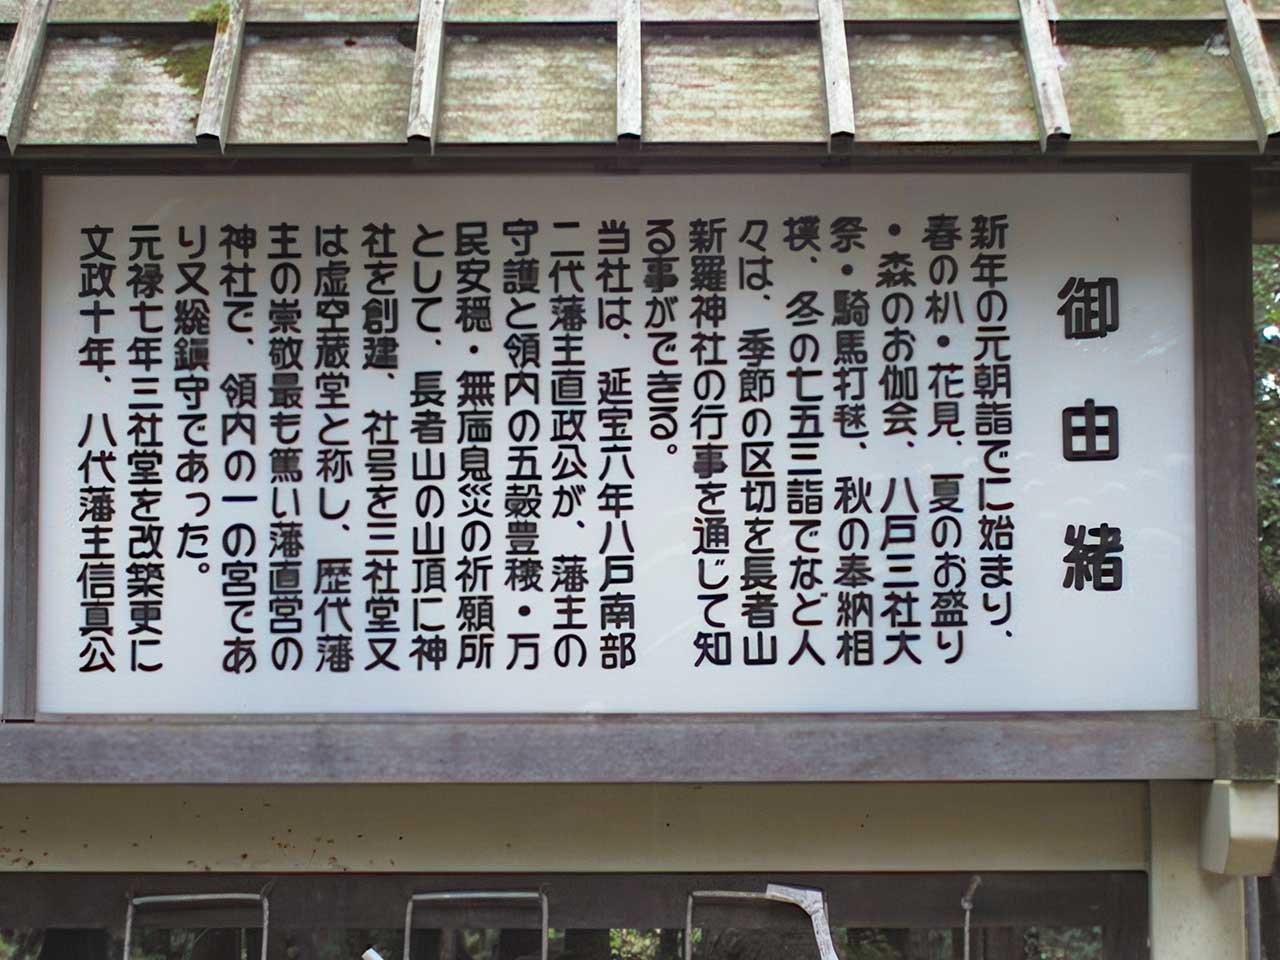 御由緒
新年の元朝詣でに始まり、
春の杁・花見、夏のお盛り
・森のお伽会、八戸三社大
祭・騎馬打毬、秋の奉納相
撲、冬の七五三詣でなど人
々は、季節の区切を長者山
新羅神社の行事を通じて知
る事ができる。
当社は、延宝六年八戸南部
二代藩主直政公が、藩主の
守護と領内の五穀豊穣・万
民安穏・無病息災の祈願所
として、長者山の山頂に神
社を創建、社号を三社堂又
は虚空蔵堂と称し、歴代藩
主の崇敬最も篤い藩直営の
神社で、領内の一の宮であ
り又総鎮守であった。
元禄七年三社堂を改築更に
文政十年、八代藩主信真公